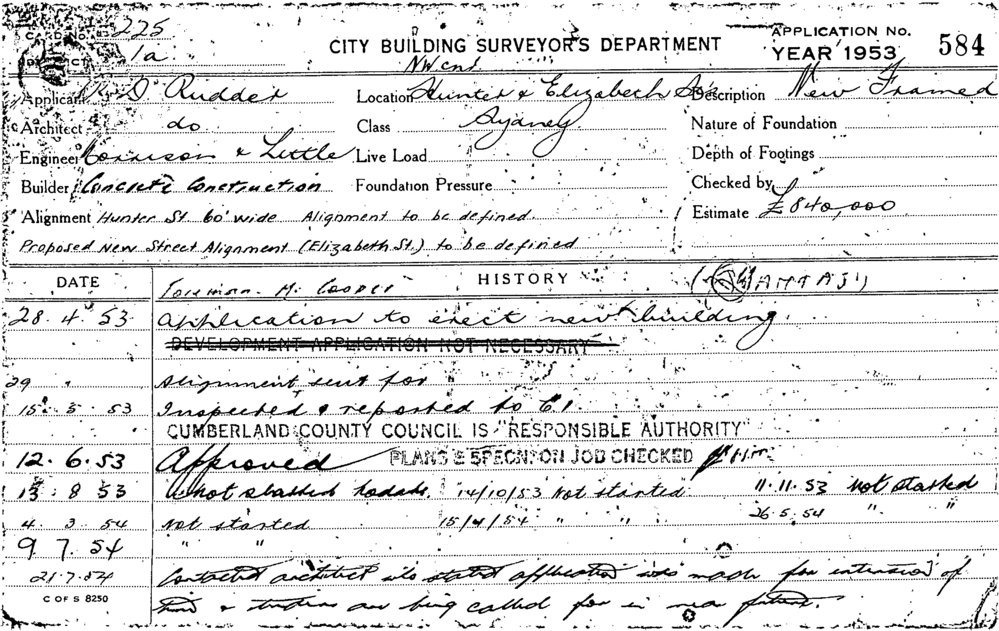 CARD NO. 225
DISTRICT 1a
CITY BUILDING SURVEYOR'S DEPARTMENT
APPLICATION No. 584
YEAR 1953
Applicant D. Rudder
NW cnr
Location Hunter & Elizabeth Sts
Description New Framed
Architect do
Class Sydney
Nature of Foundation
Engineer Morrison & Little
Live Load
Depth of Footings
Builder Concrete Construction
Foundation Pressure
Checked by
Alignment Hunter St. 60' wide Alignment to be defined.
Estimate £840,000
Proposed New Street Alignment (Elizabeth St.) to be defined
DATE
HISTORY
Foreman. M. Cooper
28.4.53 Application to erect new building.
DEVELOPMENT APPLICATION NOT NECESSARY
29 " Alignment sent for
15.5.53 Inspected & reported to
CUMBERLAND COUNTY COUNCIL IS "RESPONSIBLE AUTHORITY"
12.6.53 Approved PLANS & SPECN. ON JOB CHECKED
13.8.53 not started 14/10/53 Not started 11.11.53 Not started
4.3.54 Not started 15/4/54 " " 26.5.54 " "
9.7.54 " "
21.7.54 Contacted architect who stated application was made for extension of
time & tenders are being called for in near future.
C OF S 8250